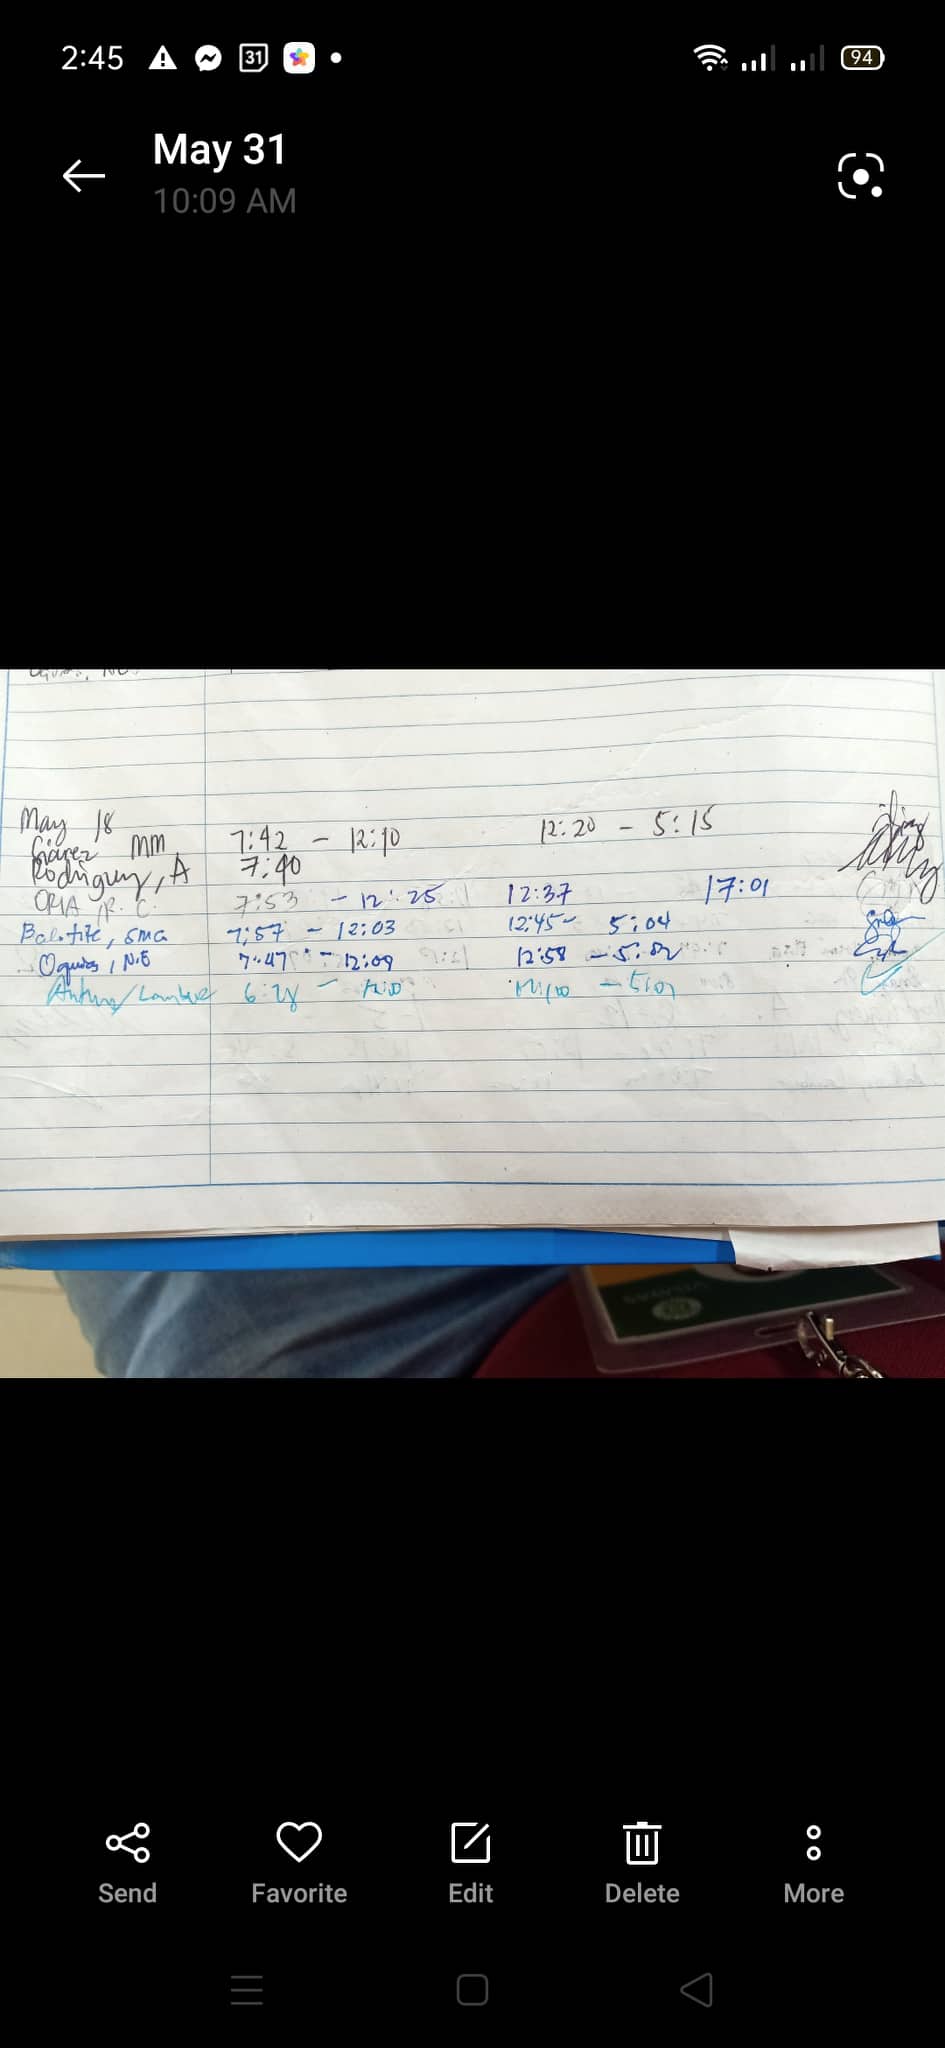 2:45 31 94
May 31
10:09 AM
May 18
MM 7:42 - 12:10 12:20 - 5:15
Rodriguez, A 7:40
ORIA, R. C. 7:53 - 12:25 12:37 17:01
SMG 7:57 - 12:03 12:45 - 5:04
N.E 7:47 - 12:09 12:58 - 5:02
Send Favorite Edit Delete More